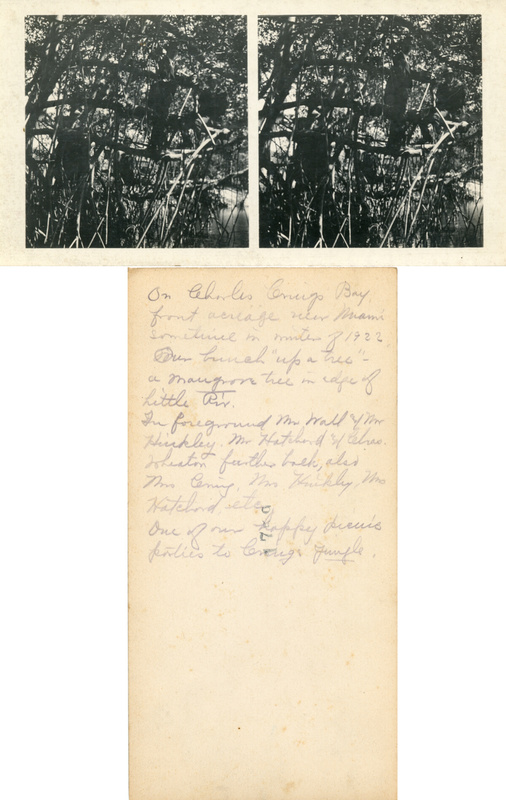 On Charles Craigs Bay
front acreage near Miami
sometime in winter of 1922.
Our bunch "up a tree" -
a mangrove tree in edge of
Little Riv.
In foreground Mr Wall & Mr
Hinkley. Mr Hatchard & Chas.
Wheaton further back, also
Mrs Craig, Mrs Hinkley, Mrs
Hatchard etc.
One of our happy picnic
parties to Craigs jungle.